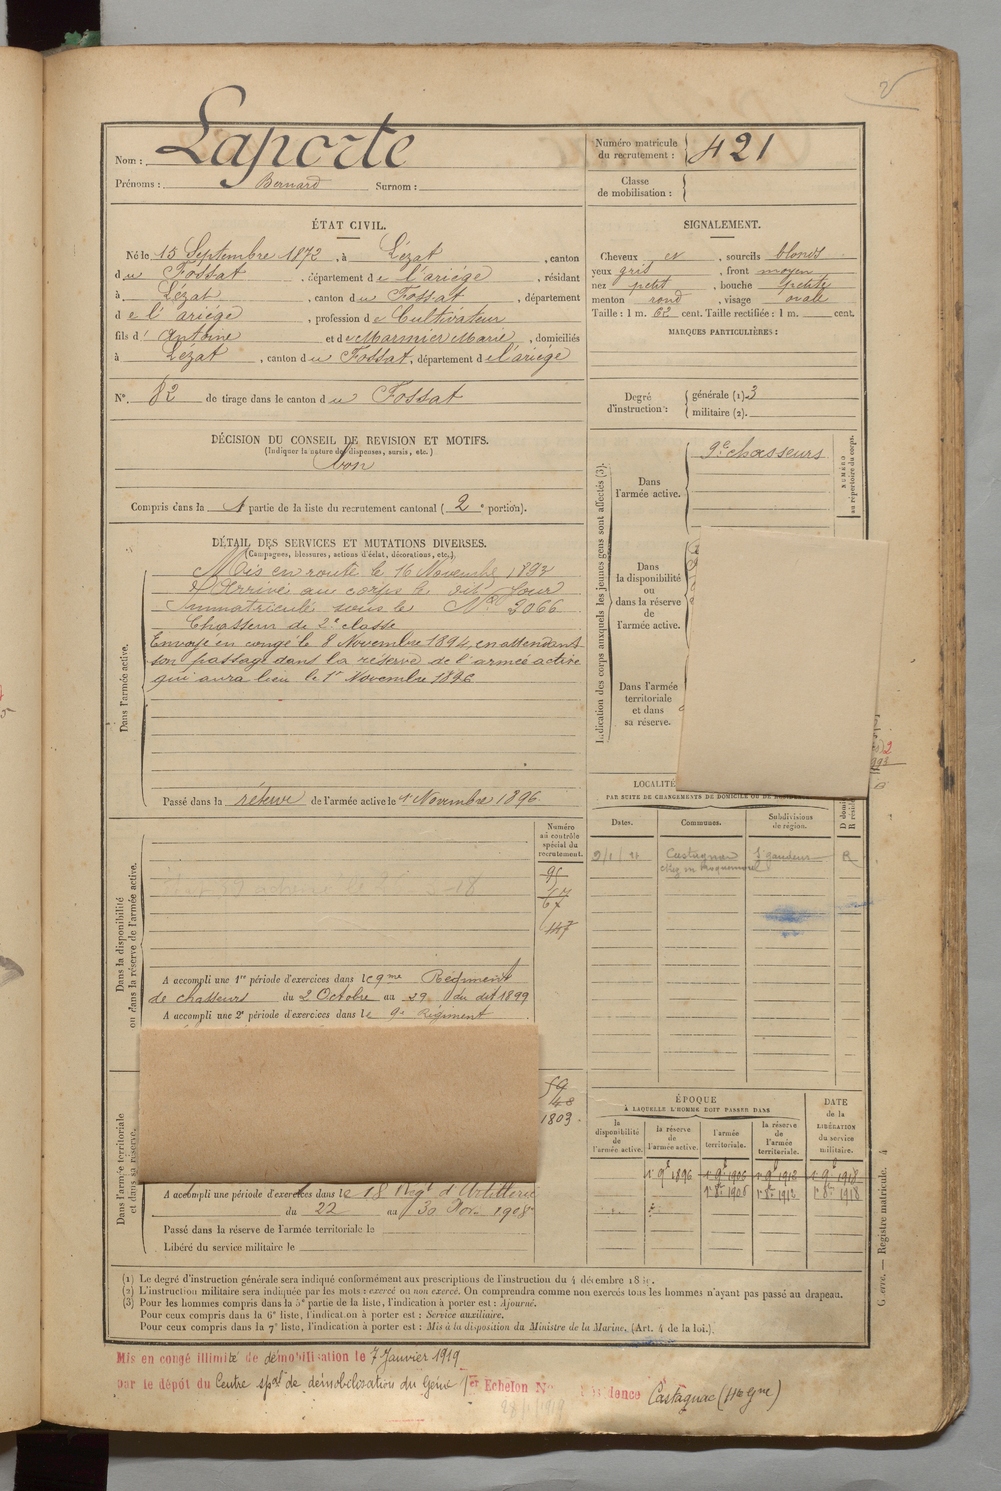 Nom : Laporte
Prénoms : Bernard Surnom :
Numéro matricule du recrutement : 421
Classe de mobilisation :
ÉTAT CIVIL.
Né le 15 Septembre 1872, à Lézat, canton
du Fossat, département de l'ariége, résidant
à Lézat, canton du Fossat, département
de l'ariége, profession de Cultivateur
fils d'Antoine et de Marmier Marie, domiciliés
à Lézat, canton du Fossat, département de l'ariége
N° 82 de tirage dans le canton du Fossat
SIGNALEMENT.
Cheveux et, sourcils blonds
yeux gris, front moyen
nez petit, bouche petite
menton rond, visage ovale
Taille : 1 m. 62 cent. Taille rectifiée : 1 m. cent.
MARQUES PARTICULIÈRES :
Degré d'instruction : générale (1). 3
militaire (2).
DÉCISION DU CONSEIL DE REVISION ET MOTIFS.
(Indiquer la nature des dispenses, sursis, etc.)
bon
Compris dans la 1 partie de la liste du recrutement cantonal (2e portion).
DÉTAIL DES SERVICES ET MUTATIONS DIVERSES.
(Campagnes, blessures, actions d'éclat, décorations, etc.)
Dans l'armée active.
Mis en route le 16 Novembre 1893
Arrivé au corps le dit Jour
Immatriculé sous le No 3066
Chasseur de 2e classe
Envoyé en congé le 8 Novembre 1894, en attendant
son passage dans la réserve de l'armée active
qui aura lieu le 1er Novembre 1896
Passé dans la réserve de l'armée active le 1 Novembre 1896.
Indication des corps auxquels les jeunes gens sont affectés (3).
Dans l'armée active.
9e chasseurs
NUMÉRO au répertoire du corps.
Dans la disponibilité ou dans la réserve de l'armée active.
Dans l'armée territoriale et dans sa réserve.
LOCALITÉ
PAR SUITE DE CHANGEMENTS DE DOMICILE OU DE
Dates. Communes. Subdivisions de région.
Castagnac St gaudens R
Dans la disponibilité ou dans la réserve de l'armée active.
Numéro au contrôle spécial du recrutement.
A accompli une 1re période d'exercices dans le 9me Régiment
de chasseurs du 2 Octobre au 29 du dit 1899
A accompli une 2e période d'exercices dans le 9e Régiment
Dans l'armée territoriale et dans sa réserve.
59
48
1803.
A accompli une période d'exercices dans le 18 Regt d'Artillerie
du 22 au 30 Nov. 1908
Passé dans la réserve de l'armée territoriale le
Libéré du service militaire le
ÉPOQUE
À LAQUELLE L'HOMME DOIT PASSER DANS
la disponibilité de l'armée active.
la réserve de l'armée active.
l'armée territoriale.
la réserve de l'armée territoriale.
DATE de la LIBÉRATION du service militaire.
1r 9b 1896 1r 9b 1906 1r 9b 1912 1r 9b 1918
1r 8b 1906 1r 8b 1912 1r 8b 1918
(1) Le degré d'instruction générale sera indiqué conformément aux prescriptions de l'instruction du 4 décembre
(2) L'instruction militaire sera indiquée par les mots : exercé ou non exercé. On comprendra comme non exercés tous les hommes n'ayant pas passé au drapeau.
(3) Pour les hommes compris dans la 5e partie de la liste, l'indication à porter est : Ajourné.
Pour ceux compris dans la 6e liste, l'indication à porter est : Service auxiliaire.
Pour ceux compris dans la 7e liste, l'indication à porter est : Mis à la disposition du Ministre de la Marine. (Art. 4 de la loi.)
Registre matricule. 4
Mis en congé illimité de démobilisation le 7 Janvier 1919
par le dépôt du Centre spal de démobilisation du Génie 1er Echelon No Résidence Castagnac (Hte Gne)